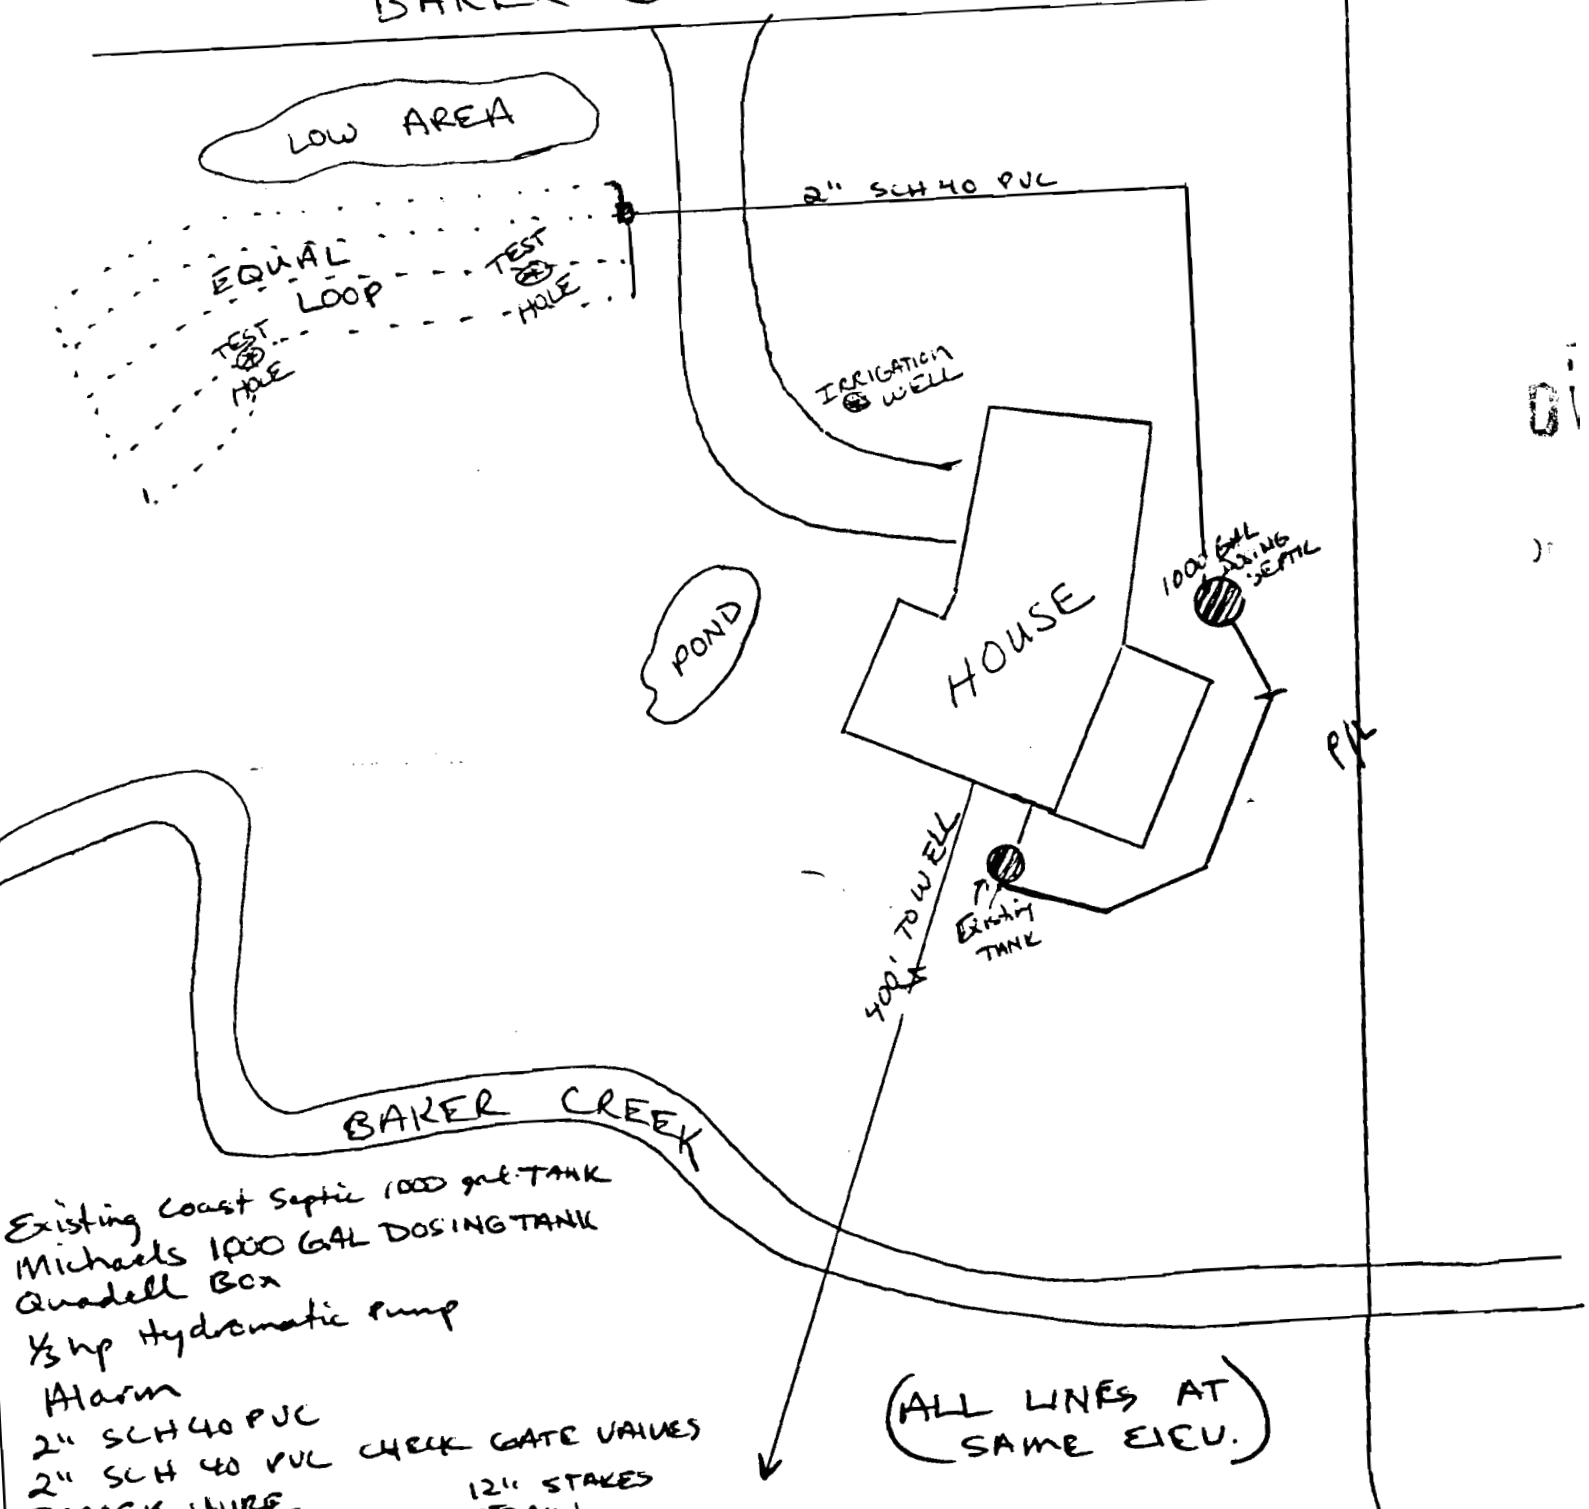 BAKER
LOW AREA
2" SCH 40 PVC
EQUAL
LOOP
TEST
HOLE
TEST
HOLE
IRRIGATION
WELL
1000 GAL
DOSING
SEPTIC
HOUSE
POND
P/L
400' TO WELL
Existing
TANK
BAKER CREEK
Existing Coast Septic 1000 gal. TANK
Michaels 1,000 GAL DOSING TANK
Quadell Box
1/3 hp Hydromatic Pump
Alarm
2" SCH 40 PVC
2" SCH 40 PVC CHECK GATE VALVES
WIRE
12" STAKES
(ALL LINES AT
SAME ELEV.)